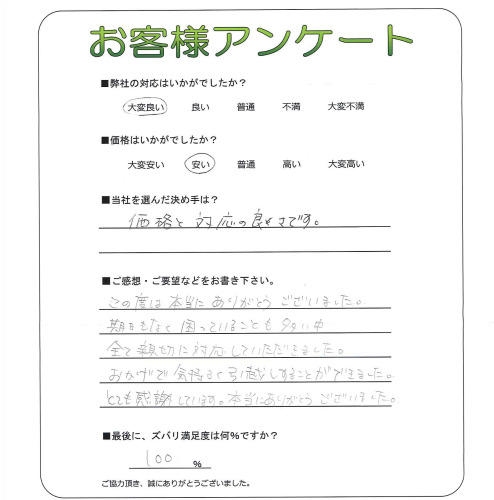 お客様アンケート
■弊社の対応はいかがでしたか？
大変良い 良い 普通 不満 大変不満
■価格はいかがでしたか？
大変安い 安い 普通 高い 大変高い
■当社を選んだ決め手は？
価格と対応の良さです。
■ご感想・ご要望などをお書き下さい。
この度は本当にありがとうございました。
期日もなく困っていることも多い中
全て親切に対応していただきました。
おかげで気持よく引越しすることができました。
とても感謝しています。本当にありがとうございました。
■最後に、ズバリ満足度は何％ですか？
100 %
ご協力頂き、誠にありがとうございました。